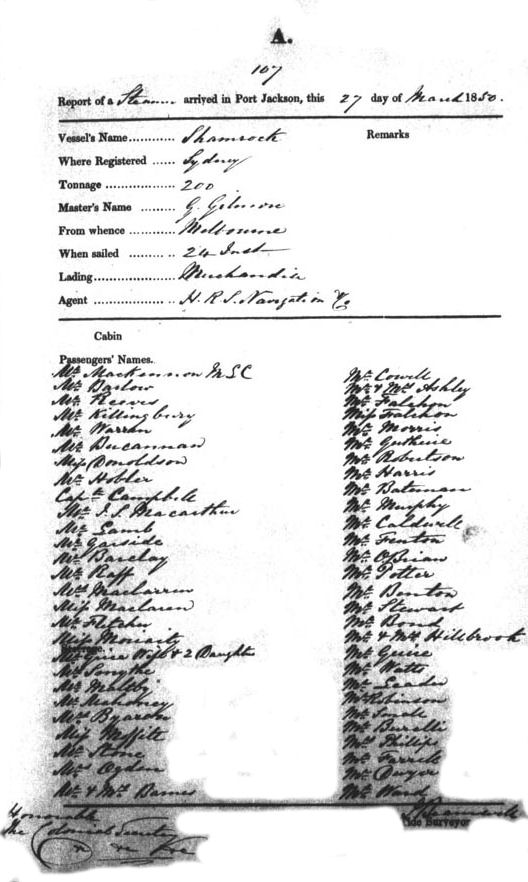 A.
107
Report of a Steamer arrived in Port Jackson, this 27 day of March 1850.
Vessel's Name............ Shamrock Remarks
Where Registered ...... Sydney
Tonnage .................. 200
Master's Name ......... G. Gilmore
From whence ............ Melbourne
When sailed ......... 24 Inst
Lading..................... Merchandise
Agent ..................... H. R. S. Navigation Co
Cabin
Passengers' Names.
Mr. Mackinnon MLC
Mr. Barlow
Mr. Reeves
Mr. Killingbury
Mr. Warren
Mr. Bucannan
Miss Donoldson
Mr. Hobler
Capt. Campbell
Mr. J. S. Macarthur
Mr. Lamb
Mr. Garside
Mr. Barclay
Mr. Raff
Mrs Maclarren
Miss Maclaren
Mr. Fletcher
Miss Moriaity
Mr. Guise Wife & 2 Daughters
Mr. Smythe
Mr. Maltby
Mr. Mahoney
Mr. Byaron
Miss Moffitt
Mr. Stone
Mrs Ogden
Mr. & Mrs. Barnes
Mr. Cowell
Mr. & Mrs Ashley
Mr. Falchon
Miss Falchon
Mr. Morris
Mr. Guthrie
Mr. Robertson
Mr. Harris
Mr. Bateman
Mr. Murphy
Mr. Caldwell
Mr. Fenton
Mr. O'Brian
Mr. Potter
Mr. Benton
Mr. Stewart
Mr. Bond
Mr. & Mrs Hillsbrook
Mr. Guise
Mr. Watts
Mr. Leader
Mr Robinson
Mr.
Mr. Burelli
Mrs Phillips
Mr. Farrell
Mr. Dwyer
Mr. Ward
Honorable
The Colonial Secretary
&c &c &c
Tide Surveyor